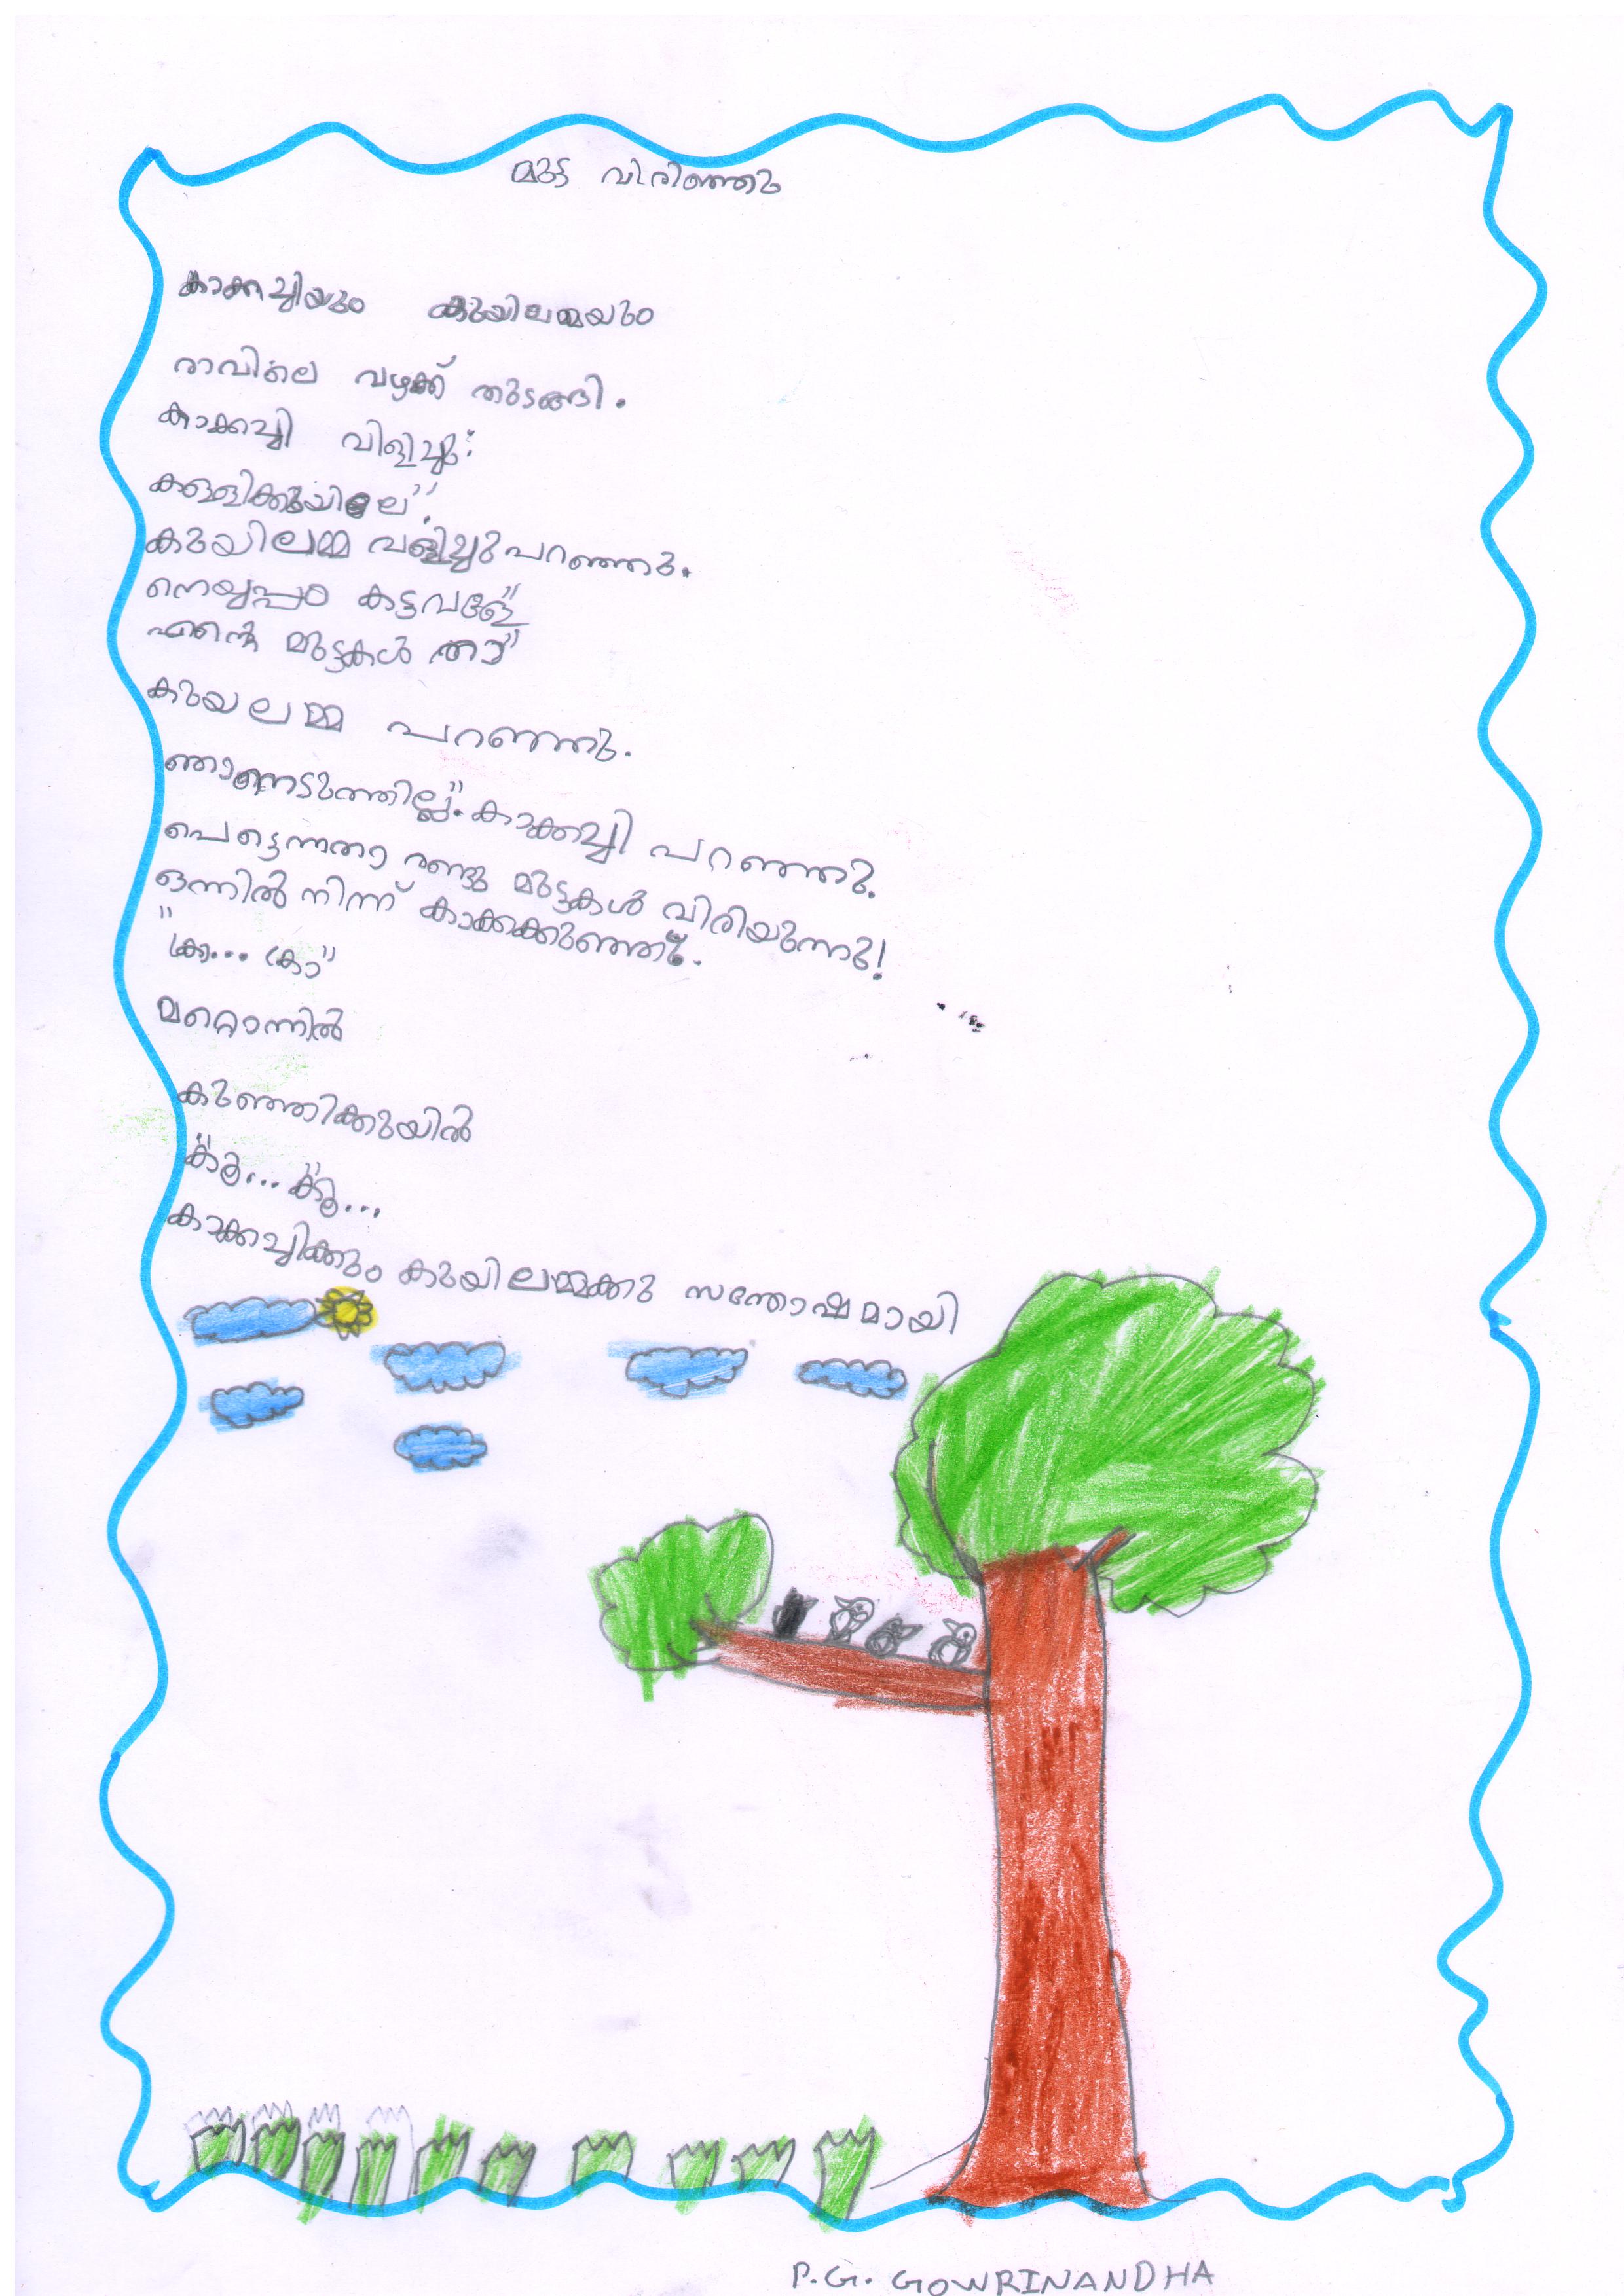 മുട്ട വിരിഞ്ഞു
കാക്കച്ചിയും കുയിലമ്മയും
രാവിലെ വഴക്ക് തുടങ്ങി.
കാക്കച്ചി വിളിച്ചു:
കള്ളിക്കുയിലേ".
കുയിലമ്മ വിളിച്ചു പറഞ്ഞു.
നെയ്യപ്പം കട്ടവളേ"
എന്റെ മുട്ടകൾ താ"
കുയലമ്മ പറഞ്ഞു.
ഞാനെടുത്തില്ല". കാക്കച്ചി പറഞ്ഞു.
പെട്ടെന്നതാ രണ്ടു മുട്ടകൾ വിരിയുന്നു!
ഒന്നിൽ നിന്ന് കാക്കക്കുഞ്ഞ്.
"ക്രാ... ക്രാ"
മറ്റൊന്നിൽ
കുഞ്ഞിക്കുയിൽ
"കൂ... കൂ...
കാക്കച്ചിക്കും കുയിലമ്മക്കു സന്തോഷമായി
P.G. GOWRINANDHA